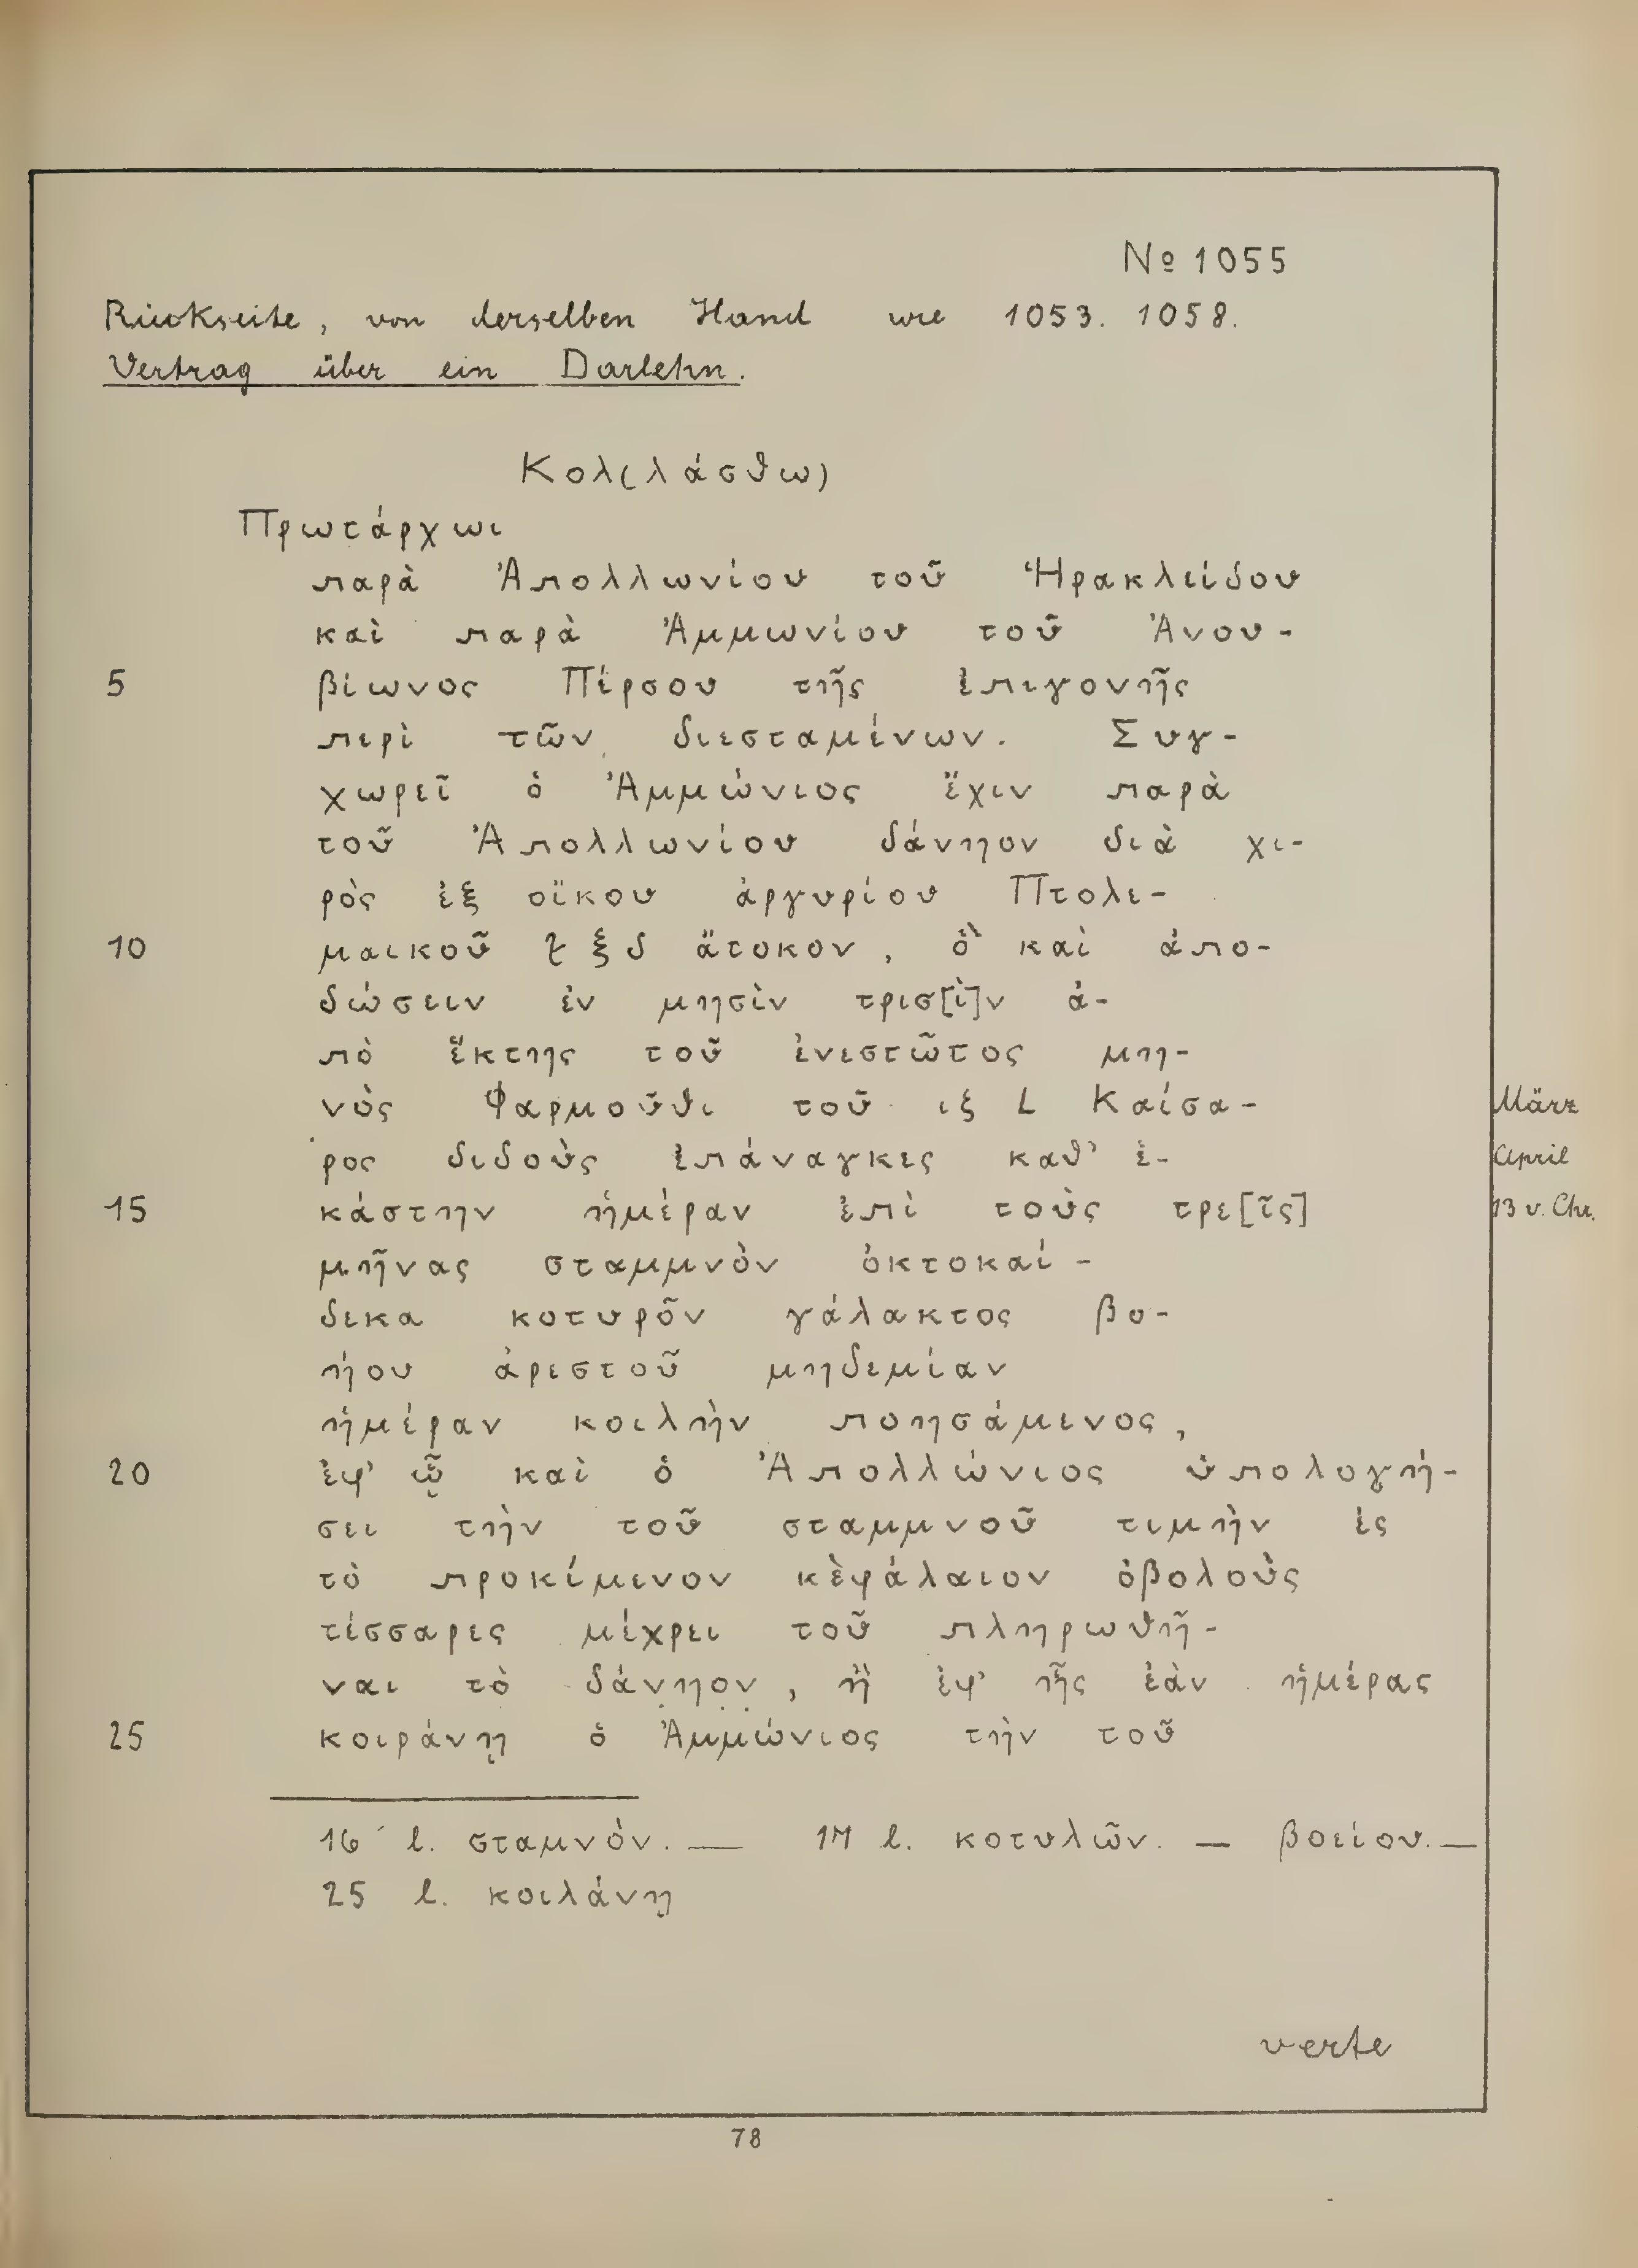 № 1055
Rückseite, von derselben Hand wie 1053. 1058.
Vertrag über ein Darlehn.
Κολ(λάσθω)
Πρωτάρχωι
παρὰ Ἀπολλωνίου τοῦ Ἡρακλείδου
καὶ παρὰ Ἀμμωνίου τοῦ Ἀνου-
5 βίωνος Πέρσου τῆς ἐπιγονῆς
περὶ τῶν διεσταμένων. Συγ-
χωρεῖ ὁ Ἀμμώνιος ἔχιν παρὰ
τοῦ Ἀπολλωνίου δάνηον διὰ χι-
ρὸς ἐξ οἴκου ἀργυρίου Πτολε-
10 μαικοῦ ξδ ἄτοκον, ὃ καὶ ἀπο-
δώσειν ἐν μησὶν τρισ[ὶ]ν ἀ-
πὸ ἕκτης τοῦ ἐνεστῶτος μη-
νὸς Φαρμοῦθι τοῦ ιξ L Καίσα- März
ρος διδοὺς ἐπάναγκες καθ’ ἑ- April
15 κάστην ἡμέραν ἐπὶ τοὺς τρε[ῖς] 13 v. Chr.
μῆνας σταμμνὸν ὀκτοκαί-
δεκα κοτυρο͂ν γάλακτος βο-
ήου ἀρεστοῦ μηδεμίαν
ἡμέραν κοιλὴν ποησάμενος,
20 ἐφ’ ᾧ καὶ ὁ Ἀπολλώνιος ὑπολογή-
σει τὴν τοῦ σταμμνοῦ τιμὴν ἐς
τὸ προκίμενον κεφάλαιον ὀβολοὺς
τέσσαρες μέχρει τοῦ πληρωθῆ-
ναι τὸ δάνηον, ἢ ἐφ’ ἧς ἐὰν ἡμέρας
25 κοιράνῃ ὁ Ἀμμώνιος τὴν τοῦ
16 l. σταμνὸν. — 17 l. κοτυλῶν. — βοείου. —
25 l. κοιλάνῃ
verte
78